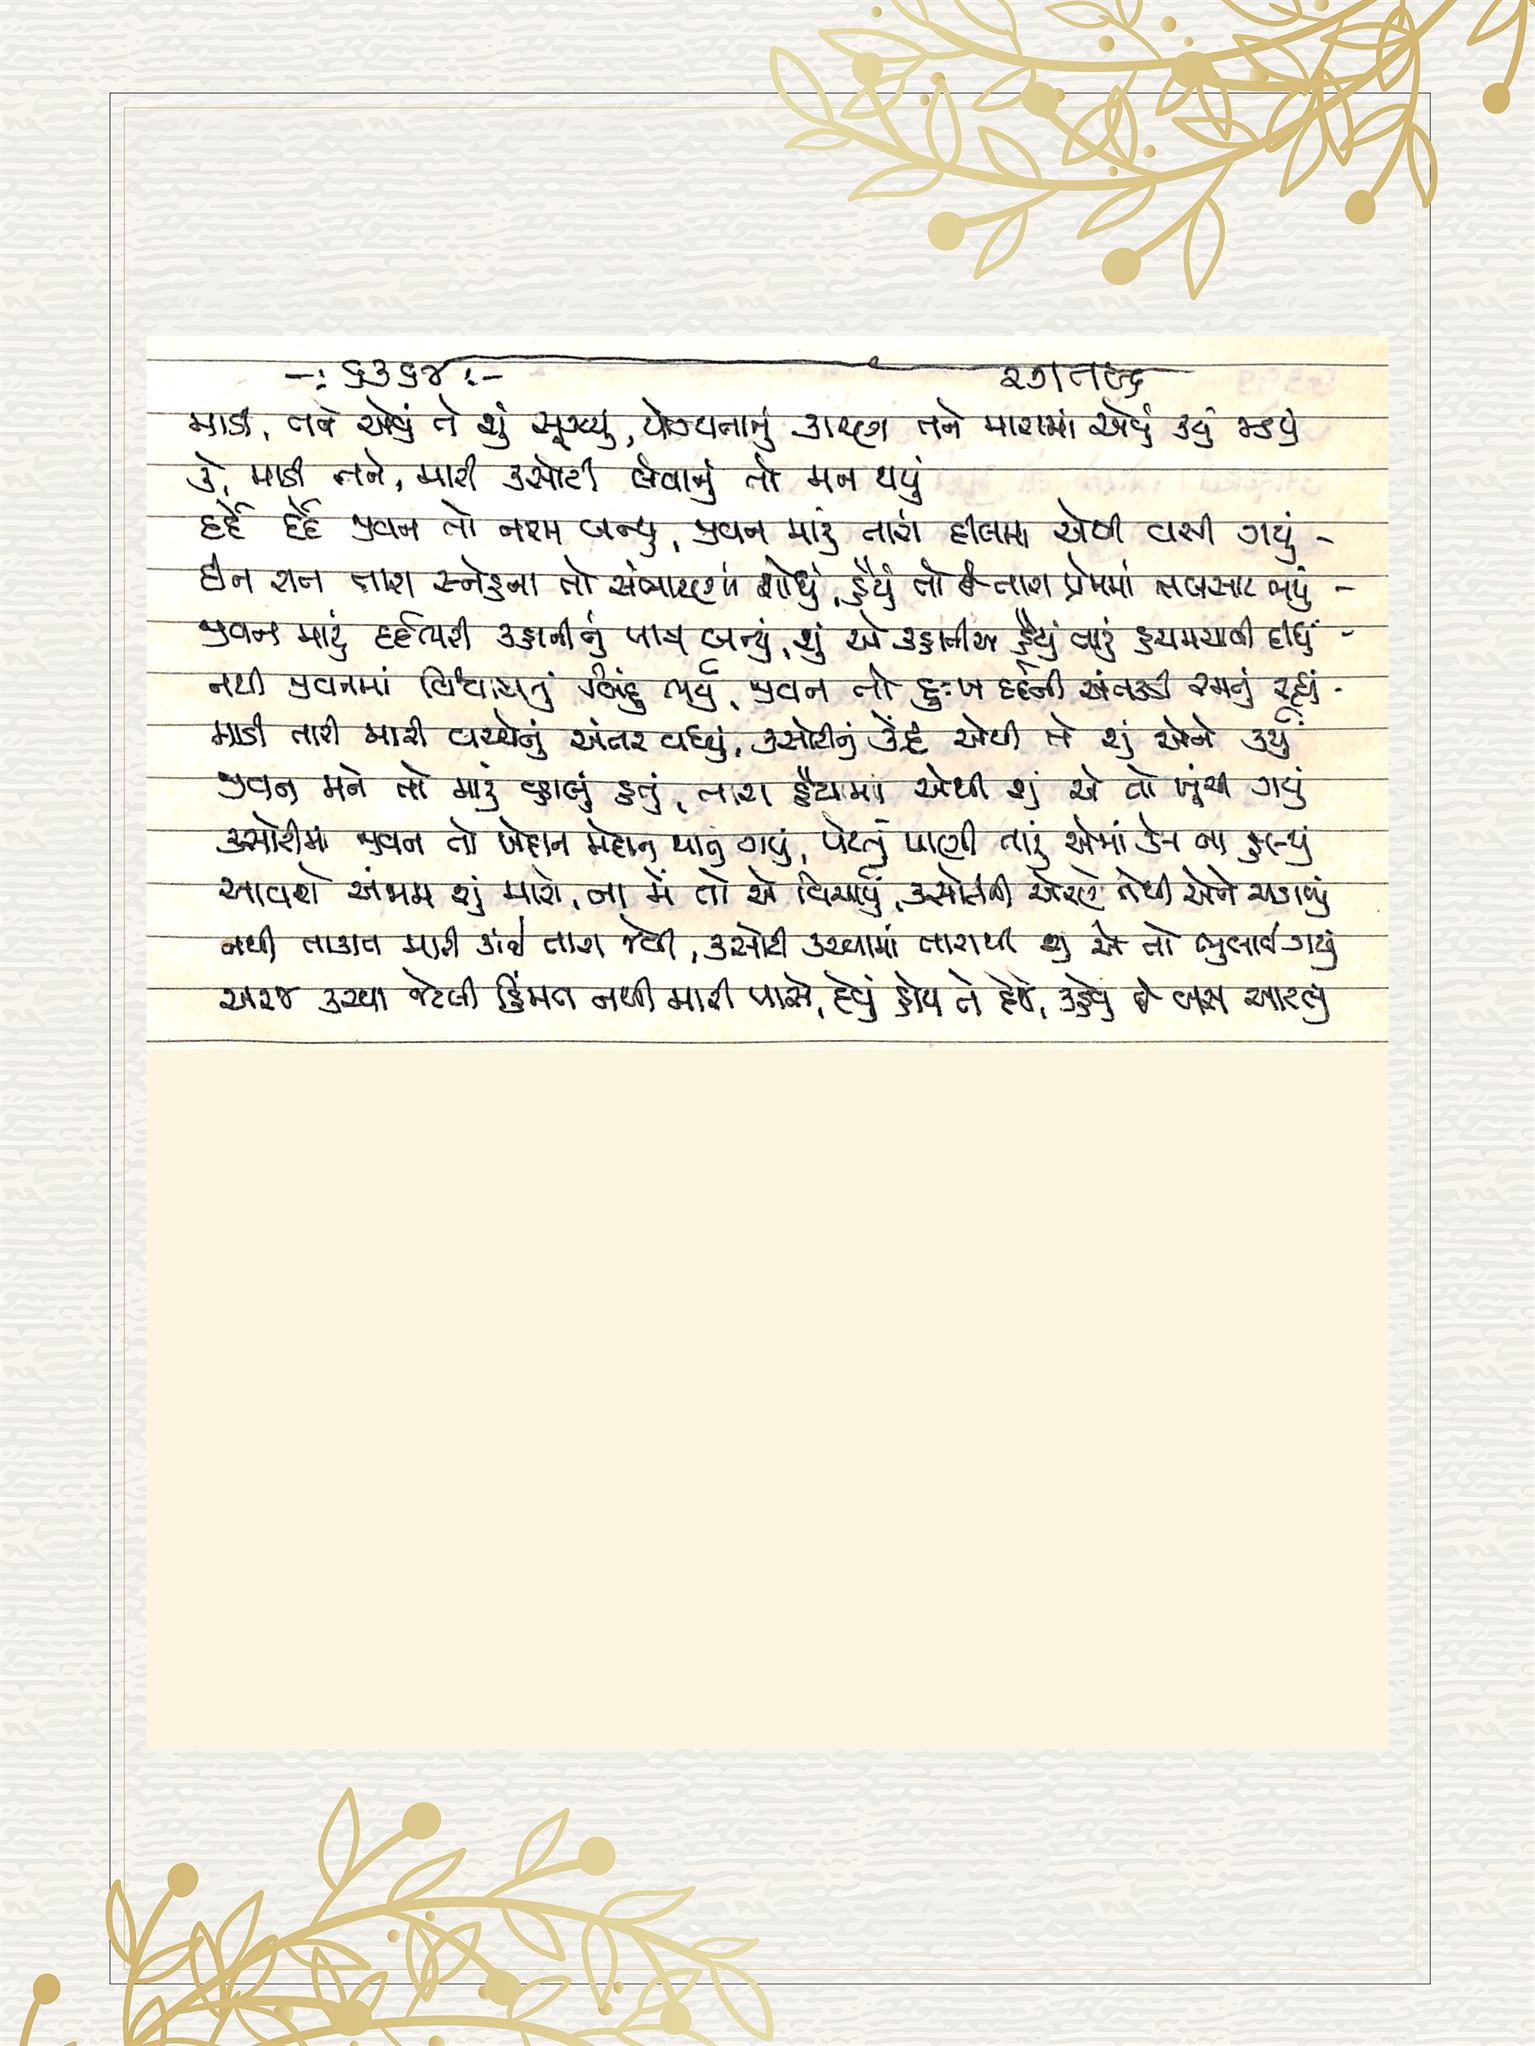 માડી, તને એવું તે શું સૂઝ્યું, યોજવાનું કારણ તને મારામાં એવું કયું મળ્યું
કે, માડી તને, મારી કસોટી લેવાનું તો મન થયું
દર્દે દર્દે જીવન તો નરમ બન્યું, જીવન મારું તારા દીલમાં એથી વસી ગયું -
દીન રાત તારા સ્નેહના તો સંભારણાં શોધું, હૈયું તો તારા પ્રેમમાં તલસાટ ભર્યું -
જીવન મારું દર્દભરી કહાનીનું પાત્ર બન્યું, શું એ કહાનીએ હૈયું તારું હચમચાવી દીધું -
નથી જીવનમાં વિશ્વાસનું બિંદુ ભર્યું, જીવન તો દુઃખ દર્દની સંતાકૂકડી રમતું રહ્યું -
માડી તારી મારી વચ્ચેનું અંતર વધ્યું, કસોટીનું કેંદ્ર એથી તેં શું એને કર્યું
જીવન મને તો મારું વ્હાલું હતું, તારા હૈયામાં એથી શું એ તો ખૂંચી ગયું
કસોટીમાં જીવન તો ખેદાન મેદાન થાતું ગયું, પેટનું પાણી તારું એમાં કેમ ના હાલ્યું
આવશે અંજામ શું મારો, ના મેં તો એ વિચાર્યું, કસોટીની એરણે તેથી એને ચડાવ્યું
નથી તાકાત મારી કાંઈ તારા જેવી, કસોટી કરવામાં તારાથી શું એ તો ભુલાઈ ગયું
અરજ કરવા જેટલી હિંમત નથી મારી પાસે, દેવું હોય તે દેજે, કહેવું છે બસ આટલું